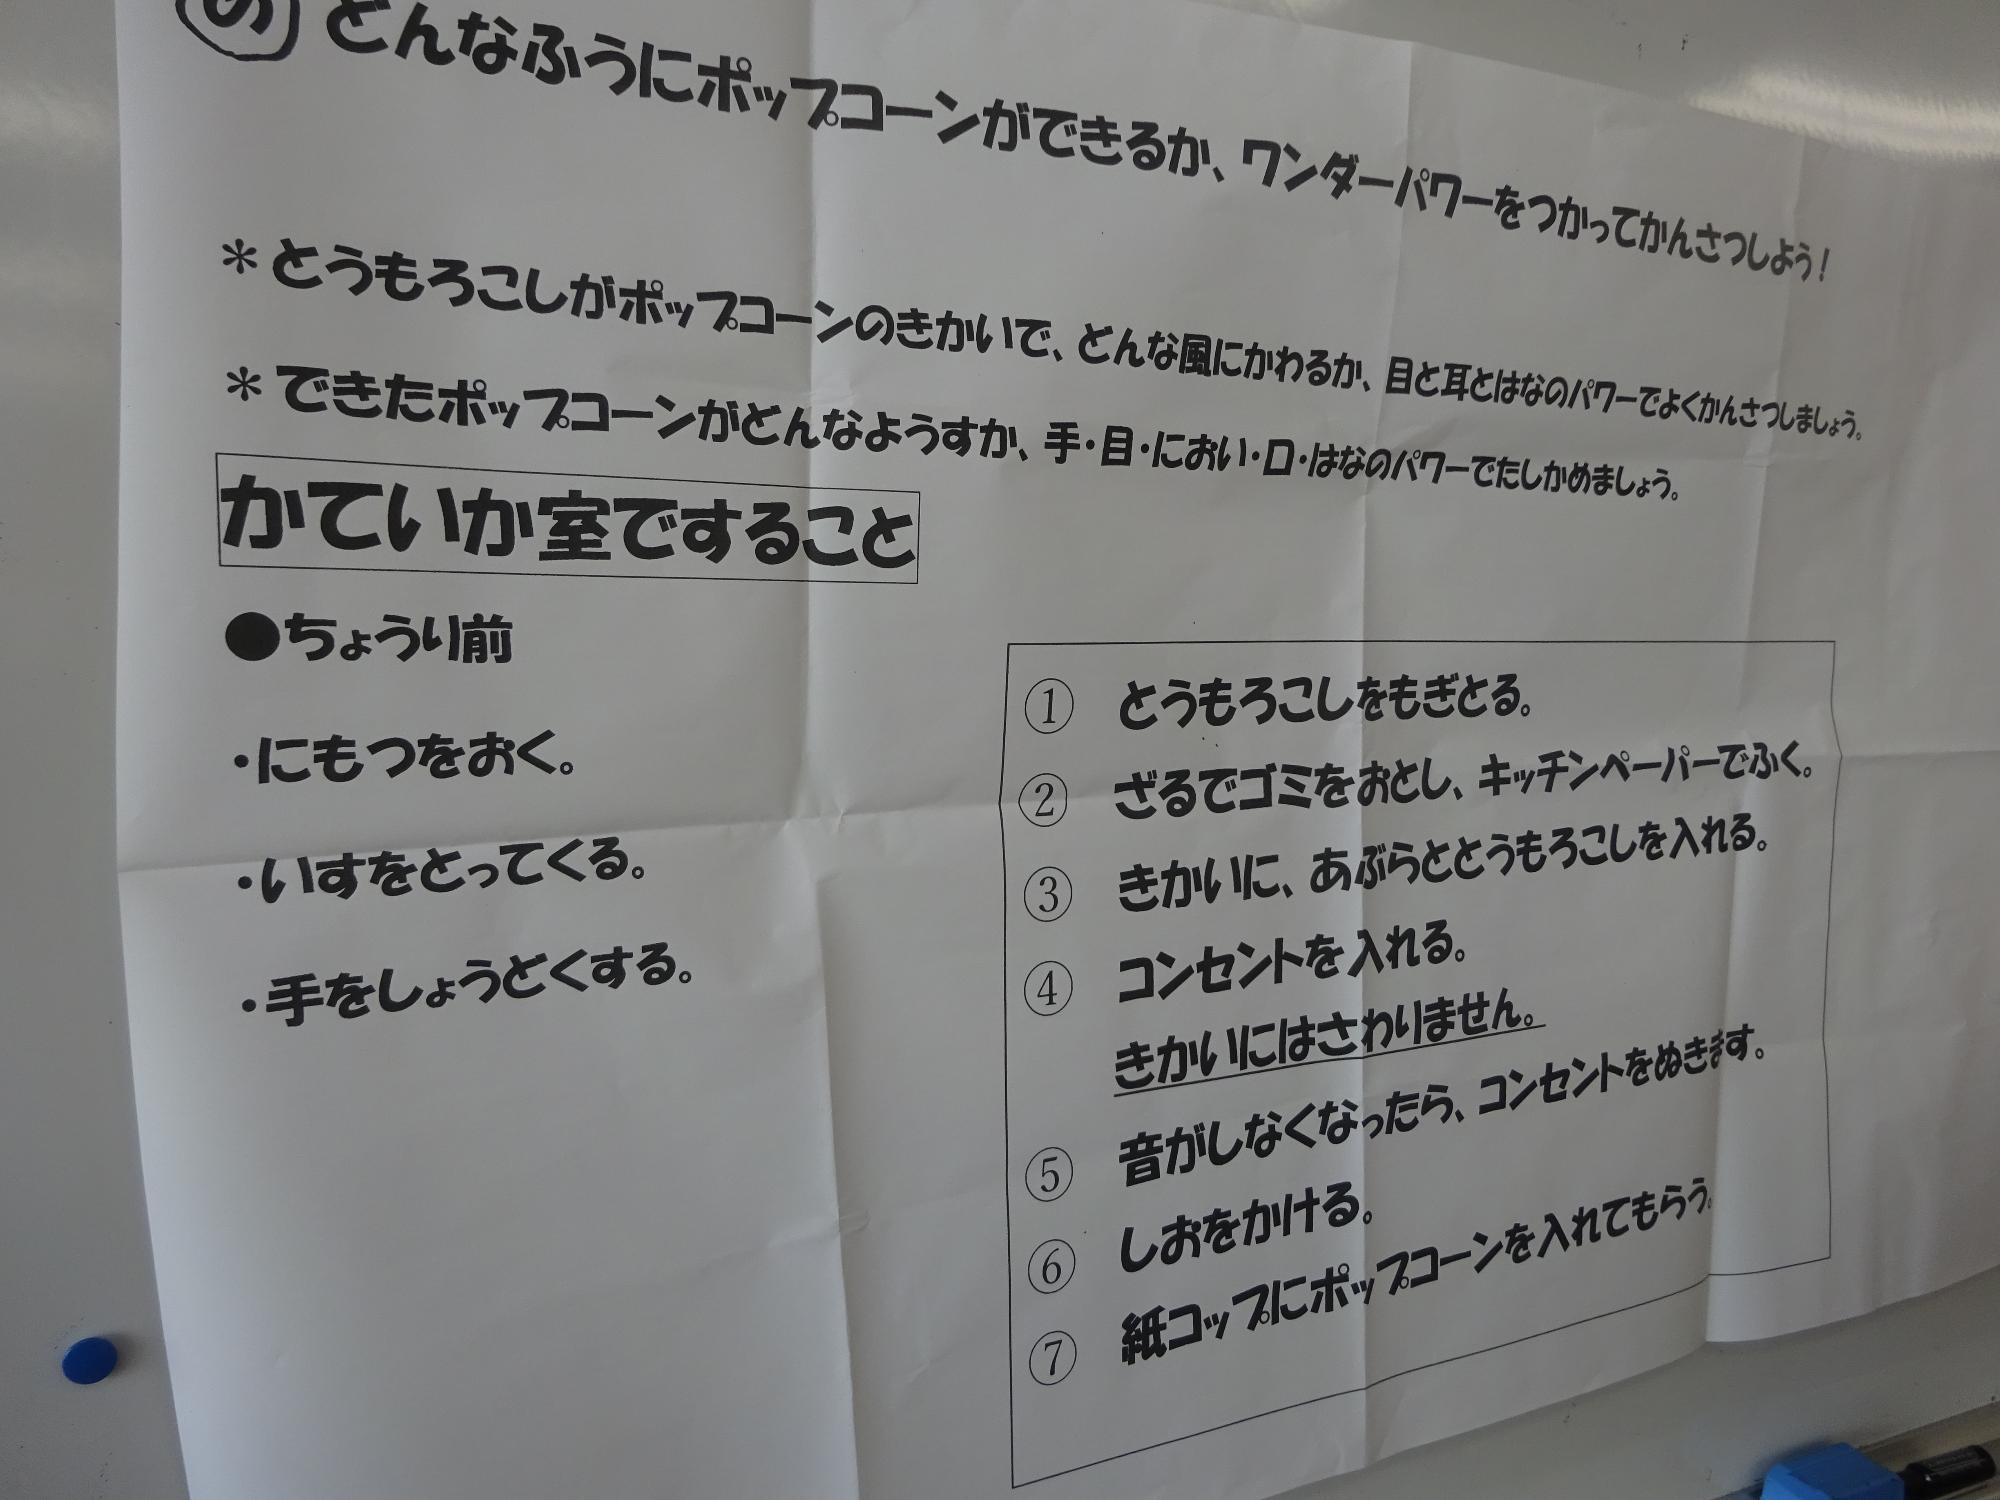 め どんなふうにポップコーンができるか、ワンダーパワーをつかってかんさつしよう！
＊とうもろこしがポップコーンのきかいで、どんな風にかわるか、目と耳とはなのパワーでよくかんさつしましょう。
＊できたポップコーンがどんなようすか、手・目・におい・口・はなのパワーでたしかめましょう。
かていか室ですること
●ちょうり前
・にもつをおく。
・いすをとってくる。
・手をしょうどくする。
① とうもろこしをもぎとる。
② ざるでゴミをおとし、キッチンペーパーでふく。
③ きかいに、あぶらととうもろこしを入れる。
④ コンセントを入れる。
きかいにはさわりません。
⑤ 音がしなくなったら、コンセントをぬきます。
⑥ しおをかける。
⑦ 紙コップにポップコーンを入れてもらう。